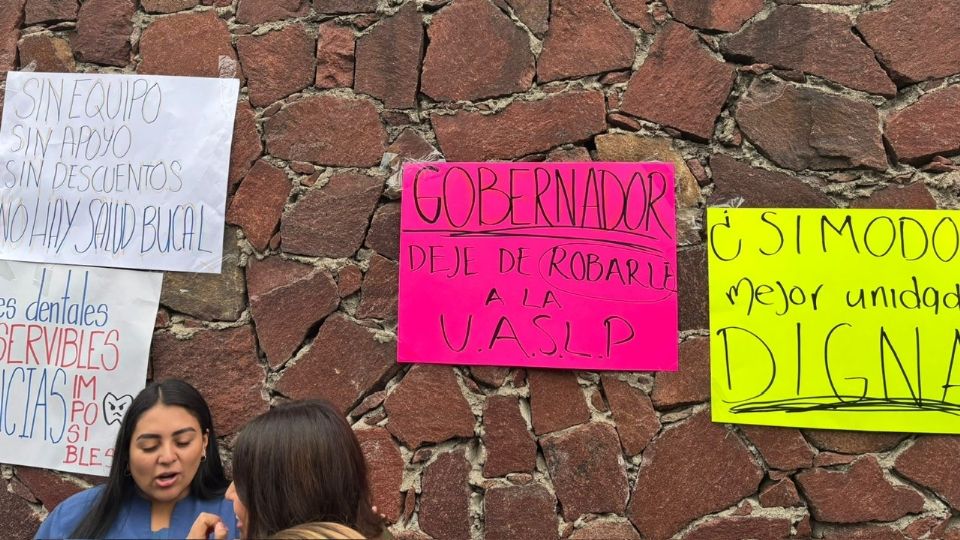 SIN EQUIPO
SIN APOYO
SIN DESCUENTOS
NO HAY SALUD BUCAL
es dentales
SERVIBLES
NCIAS
IM
PO
SI
BLES
GOBERNADOR
DEJE DE ROBARLE
A LA
U.A.S.L.P
¿SI MODO
mejor unidad
DIGNA